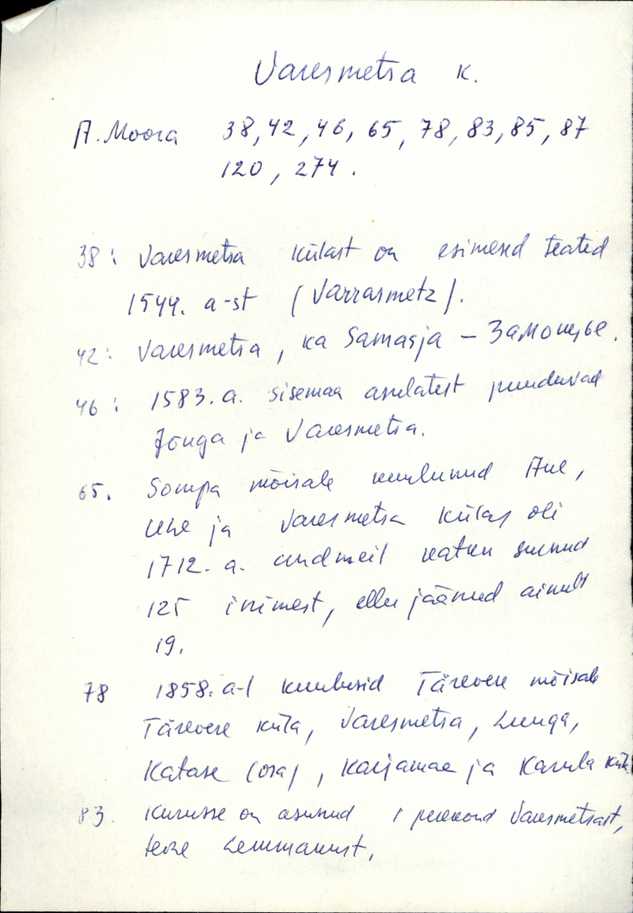 Varesmetsa k.
A. Moora 38, 42, 46, 65, 78, 83, 85, 87
120, 274.
38: Varesmetsa külast on esimesed teated
1544. a-st (Varrasmetz).
42: Varesmetsa, ka Samasja – Замошье.
46: 1583. a. sisemaa asulatest puuduvad
Jõuga ja Varesmetsa.
65. Sompa mõisale kuulunud Aue,
Uhe ja Varesmetsa külas oli
1712. a. andmeil katku surnud
125 inimest, ellu jäänud ainult
19.
78 1858. a-l kuulusid Tärevere mõisale
Tärevere küla, Varesmetsa,
Katase (osa), Karjamaa ja Kamla küla
83. Kurusse on asunud 1 perekond Varesmetsast,
teine Lemmarust.